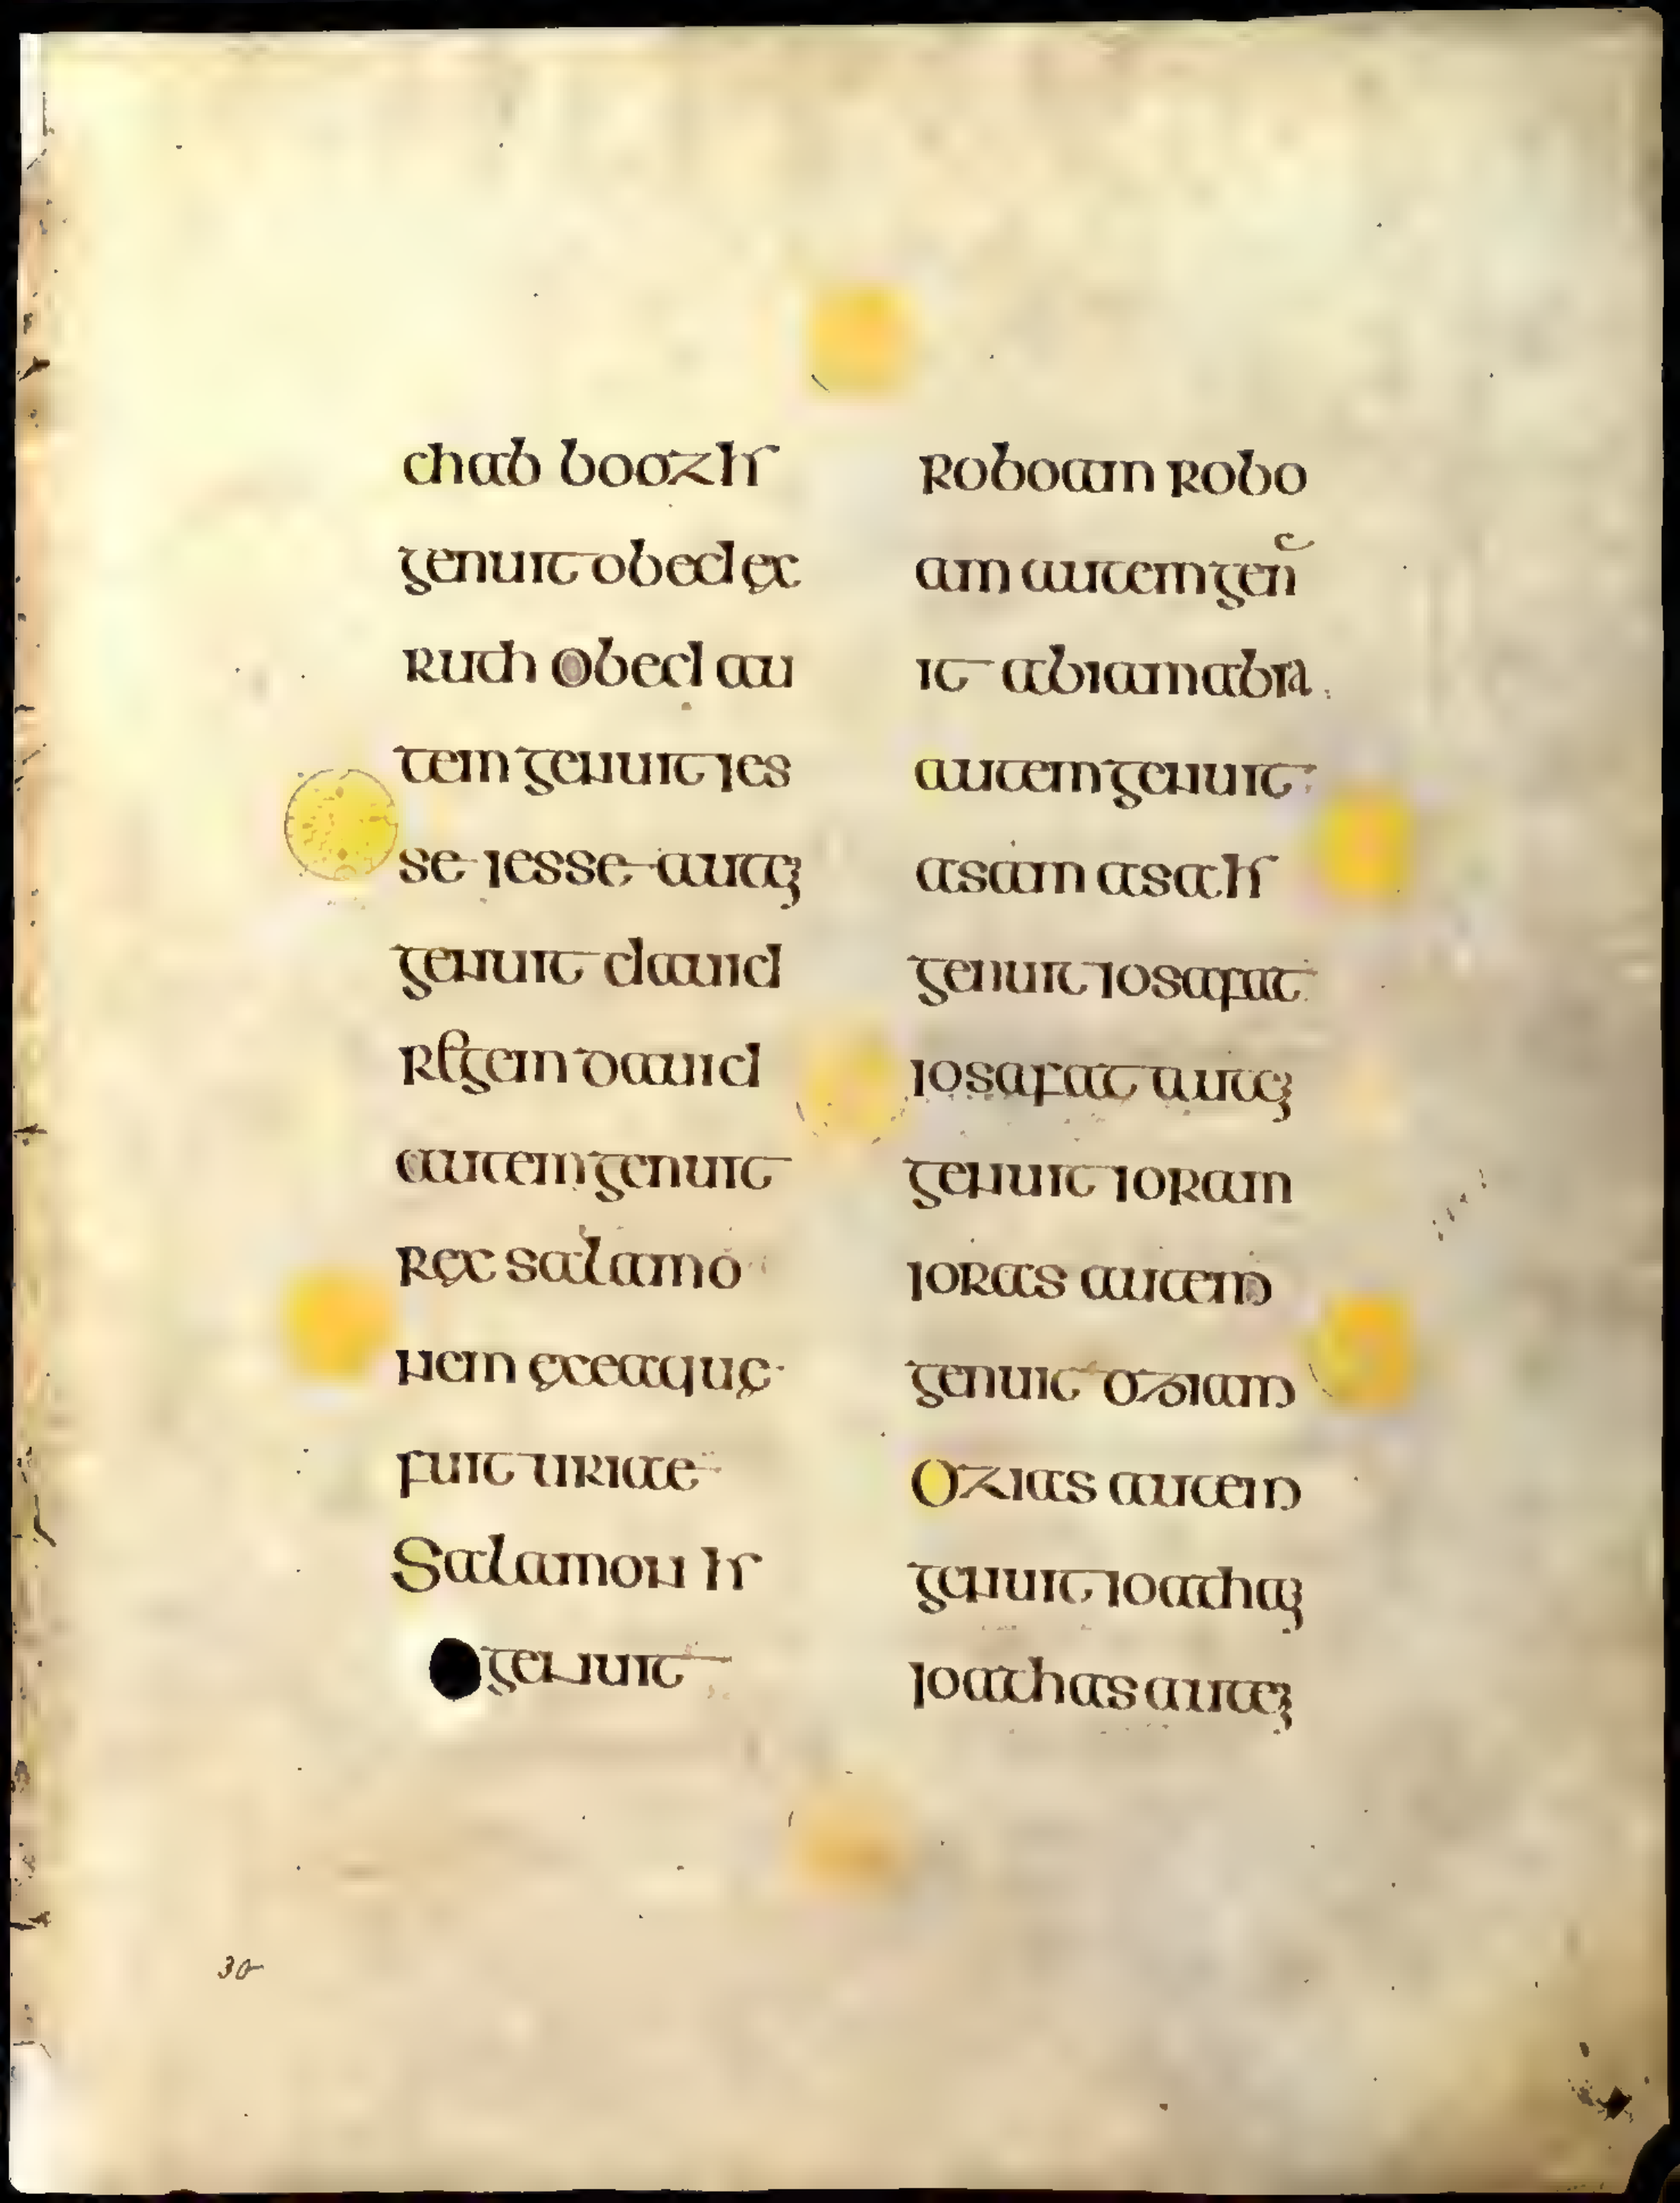 chab booz hr
genuit obed ex
Ruth Obed au
tem genuit ies
se iesse autem
genuit dauid
Regem dauid
autem genuit
Rex salamo
nem ex ea que
fuit uriae
Salamon hr
genuit
Roboam Robo
am autem gen̄
it abiam abia
autem genuit
asam asa hr
genuit iosafat
iosafat autem
genuit ioram
ioras autem
genuit oziam
Ozias autem
genuit ioatham
Ioathas autem
30